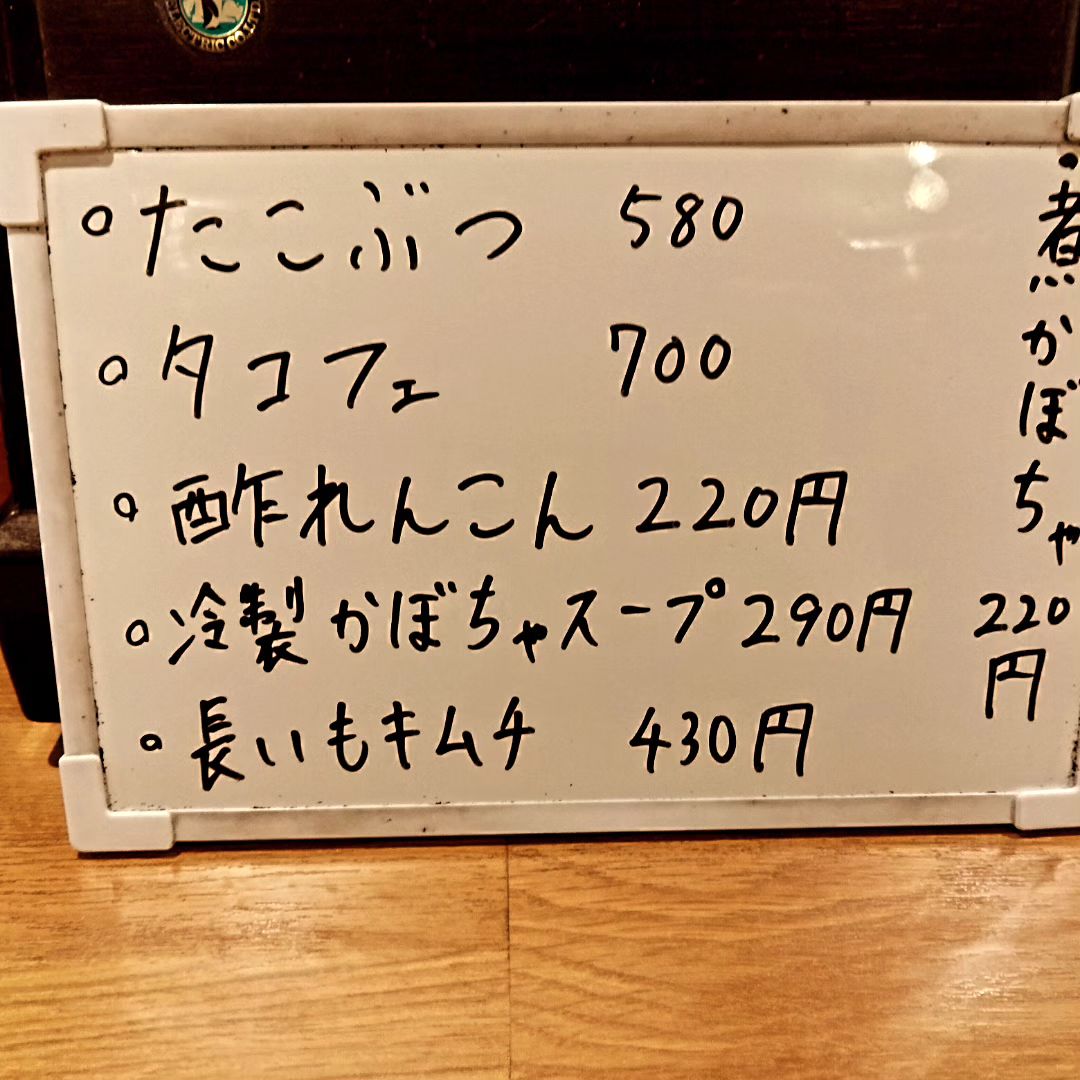 ELECTRIC CO.LTD
たこぶつ 580
タコフェ 700
酢れんこん 220円
冷製かぼちゃスープ 290円
長いもキムチ 430円
煮かぼちゃ
220
円